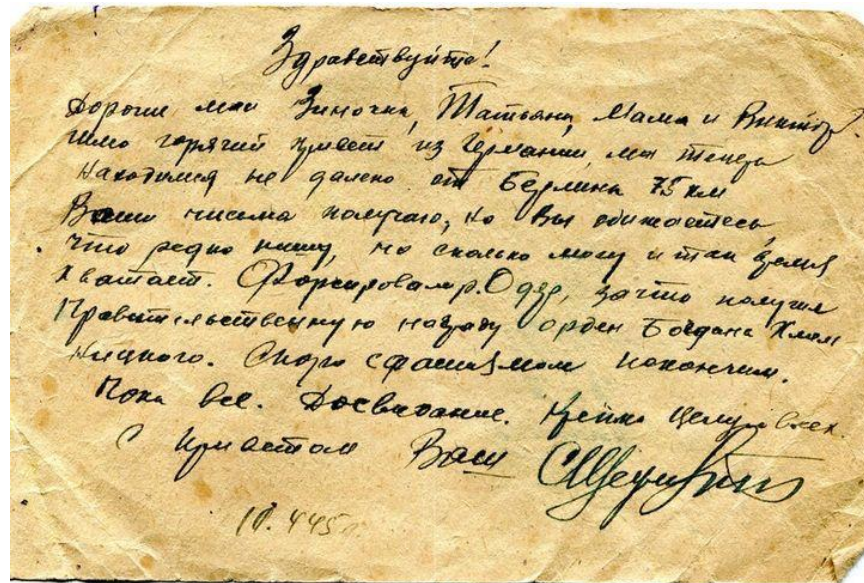 Здравствуйте!
Дорогие мои Зиночка, Татьяна, Мама и Виктор!
шлю горячий привет из Германии, мы теперь
находимся не далеко от Берлина 75 км
Ваши письма получаю, но Вы обижаетесь,
что редко пишу, но сколько могу и так время
хватает. Форсировали р. Одер, за что получил
Правительственную награду орден Богдана Хмель
ницкого. Скоро с фашизмом покончим.
Пока все. Досвидание. Крепко целую всех.
С приветом Ваш
10.4.45г.